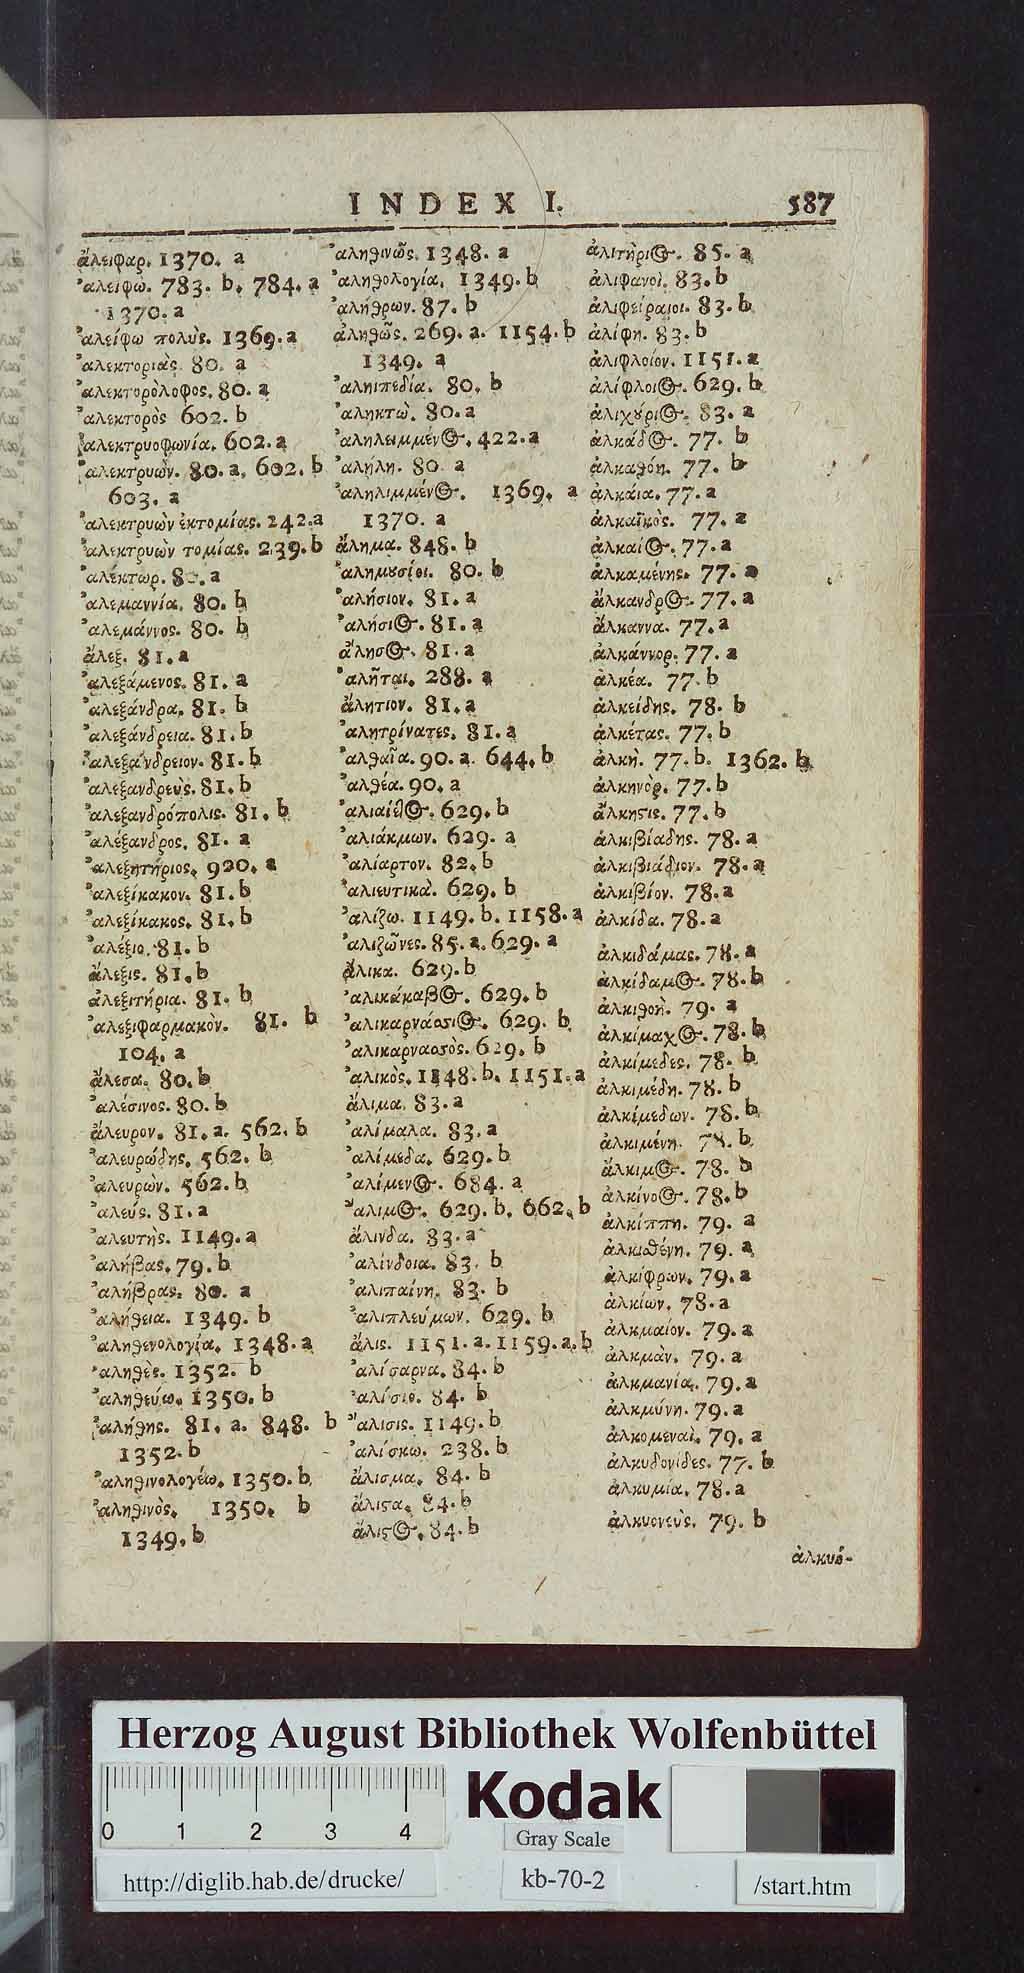 INDEX I. 587
ἄλειφαρ. 1370. a
ἀλείφω. 783. b. 784. a
1370. a
ἀλείφω πολὺς. 1369. a
ἀλεκτοριὰς. 80. a
ἀλεκτορόλοφος. 80. a
ἀλεκτορὸς 602. b
ἀλεκτρυοφωνία. 602. a
ἀλεκτρυὼν. 80. a. 602. b
603. a
ἀλεκτρυὼν ἐκτομίας. 242. a
ἀλεκτρυὼν τομίας. 239. b
ἀλέκτωρ. 80. a
ἀλεμαννία. 80. b
ἀλεμάννος. 80. b
ἄλεξ. 81. a
ἀλεξάμενος. 81. a
ἀλεξάνδρα. 81. b
ἀλεξάνδρεια. 81. b
ἀλεξάνδρειον. 81. b
ἀλεξανδρεὺς. 81. b
ἀλεξανδρόπολις. 81. b
ἀλέξανδρος. 81. a
ἀλεξητήριος. 920. a
ἀλεξίκακον. 81. b
ἀλεξίκακος. 81. b
ἀλέξιο. 81. b
ἄλεξις. 81. b
ἀλεξιτήρια. 81. b
ἀλεξιφαρμακὸν. 81. b
104. a
ἄλεσα. 80. b
ἀλέσινος. 80. b
ἄλευρον. 81. a. 562. b
ἀλευρώδης. 562. b
ἀλευρὼν. 562. b
ἀλεύς. 81. a
ἀλευτὴς. 1149. a
ἀλήβας. 79. b
ἀλήβρας. 80. a
ἀλήθεια. 1349. b
ἀληθενολογία. 1348. a
ἀληθὲς. 1352. b
ἀληθεύω. 1350. b
ἀλήθης. 81. a. 848. b
1352. b
ἀληθινολογέω. 1350. b
ἀληθινὸς. 1350. b
1349. b
ἀληθινῶς. 1348. a
ἀληθολογία. 1349. b
ἀλήθρων. 87. b
ἀληθῶς. 269. a. 1154. b
1349. a
ἀληιπεδία. 80. b
ἀληκτὼ. 80. a
ἀληλειμμένος. 422. a
ἀλήλη. 80. a
ἀληλιμμένος. 1369. a
1370. a
ἄλημα. 848. b
ἀλημούσιοι. 80. b
ἀλήσιον. 81. a
ἀλήσιος. 81. a
ἄλησος. 81. a
ἀλῆται. 288. a
ἄλητιον. 81. a
ἀλητρίνατες. 81. a
ἀλθαῖα. 90. a. 644. b
ἀλθέα. 90. a
ἀλιαίελος. 629. b
ἀλιάκμων. 629. a
ἀλίαρτον. 82. b
ἀλιευτικὰ. 629. b
ἀλίζω. 1149. b. 1158. a
ἀλιζῶνες. 85. a. 629. a
ἄλικα. 629. b
ἀλικάκαβος. 629. b
ἀλικαρνάασιος. 629. b
ἀλικαρνασσὸς. 629. b
ἀλικὸς. 1148. b. 1151. a
ἄλιμα. 83. a
ἀλίμαλα. 83. a
ἀλίμεδα. 629. b
ἀλίμενος. 684. a
ἄλιμος. 629. b. 662. b
ἄλινδα. 83. a
ἀλίνδοια. 83. b
ἀλιπαίνη. 83. b
ἀλιπλεύμων. 629. b
ἅλις. 1151. a. 1159. a. b
ἀλίσαρνα. 84. b
ἀλίσιο. 84. b
ἄλισις. 1149. b
ἀλίσκω. 238. b
ἄλισμα. 84. b
ἄλιϛα. 84. b
ἄλιϛος. 84. b
ἀλιτήριος. 85. a
ἀλιφανοὶ. 83. b
ἀλιφείραιοι. 83. b
ἀλίφη. 83. b
ἀλιφλοίον. 1151. a
ἀλίφλοιος. 629. b
ἀλιχύριος. 83. a
ἀλκάδος. 77. b
ἀλκαθόη. 77. b
ἀλκάια. 77. a
ἀλκαϊκὸς. 77. a
ἀλκαίος. 77. a
ἀλκαμένης. 77. a
ἄλκανδρος. 77. a
ἄλκαννα. 77. a
ἀλκάννορ. 77. a
ἀλκέα. 77. b
ἀλκείδης. 78. b
ἀλκέτας. 77. b
ἀλκὴ. 77. b. 1362. b
ἀλκηνὸρ. 77. b
ἄλκηϛις. 77. b
ἀλκιβίαδης. 78. a
ἀλκιβιάδιον. 78. a
ἀλκιβίον. 78. a
ἀλκίδα. 78. a
ἀλκιδάμας. 78. a
ἀλκίδαμος. 78. b
ἀλκιθοὴ. 79. a
ἀλκίμαχος. 78. b
ἀλκίμεδες. 78. b
ἀλκιμέδη. 78. b
ἀλκίμεδων. 78. b
ἀλκιμένη. 78. b
ἄλκιμος. 78. b
ἀλκίνοος. 78. b
ἀλκίππη. 79. a
ἀλκισθένη. 79. a
ἀλκίφρων. 79. a
ἀλκίων. 78. a
ἀλκμαίον. 79. a
ἀλκμὰν. 79. a
ἀλκμανία. 79. a
ἀλκμύνη. 79. a
ἀλκομεναὶ. 79. a
ἀλκυδονίδες. 77. b
ἀλκυμία. 78. a
ἀλκυονεὺς. 79. b
ἀλκυό-
Herzog August Bibliothek Wolfenbüttel
0 1 2 3 4
Kodak
Gray Scale
http://diglib.hab.de/drucke/ kb-70-2 /start.htm